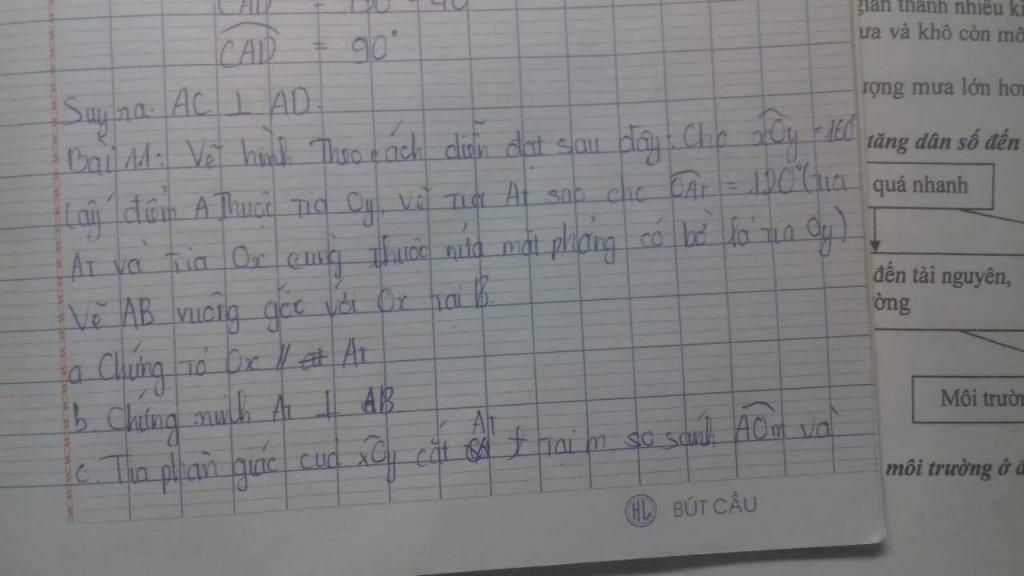 CAD
CAD = 90°
Suy ra. AC ⊥ AD.
Bài 11: Vẽ hình Theo cách diễn đạt sau đây. Cho xOy = 160°
Lấy điểm A Thuộc tia Oy, vẽ tia At sao cho OAt = 120° (tia
At và tia Ox cùng thuộc nửa mặt phẳng có bờ là tia Oy)
Vẽ AB vuông góc với Ox tại B.
a Chứng tỏ Ox // At
b Chứng minh At ⊥ AB
c. Tia phân giác của xOy cắt At tại m so sánh AOm và
HL BÚT CẦU
gian thành nhiều
ưa và khô còn
ượng mưa lớn hơn
tăng dân số đến
quá nhanh
đến tài nguyên,
ờng
Môi trườn
môi trường ở